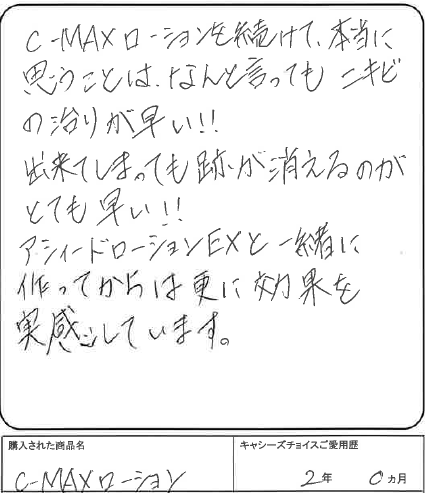 C-MAXローションを続けて、本当に
思うことは、なんと言ってもニキビ
の治りが早い!!
出来てしまっても跡が消えるのが
とても早い!!
アシィードローションEXと一緒に
作ってからは更に効果を
実感しています。
購入された商品名
キャシーズチョイスご愛用歴
C-MAXローション
2年 0ヵ月